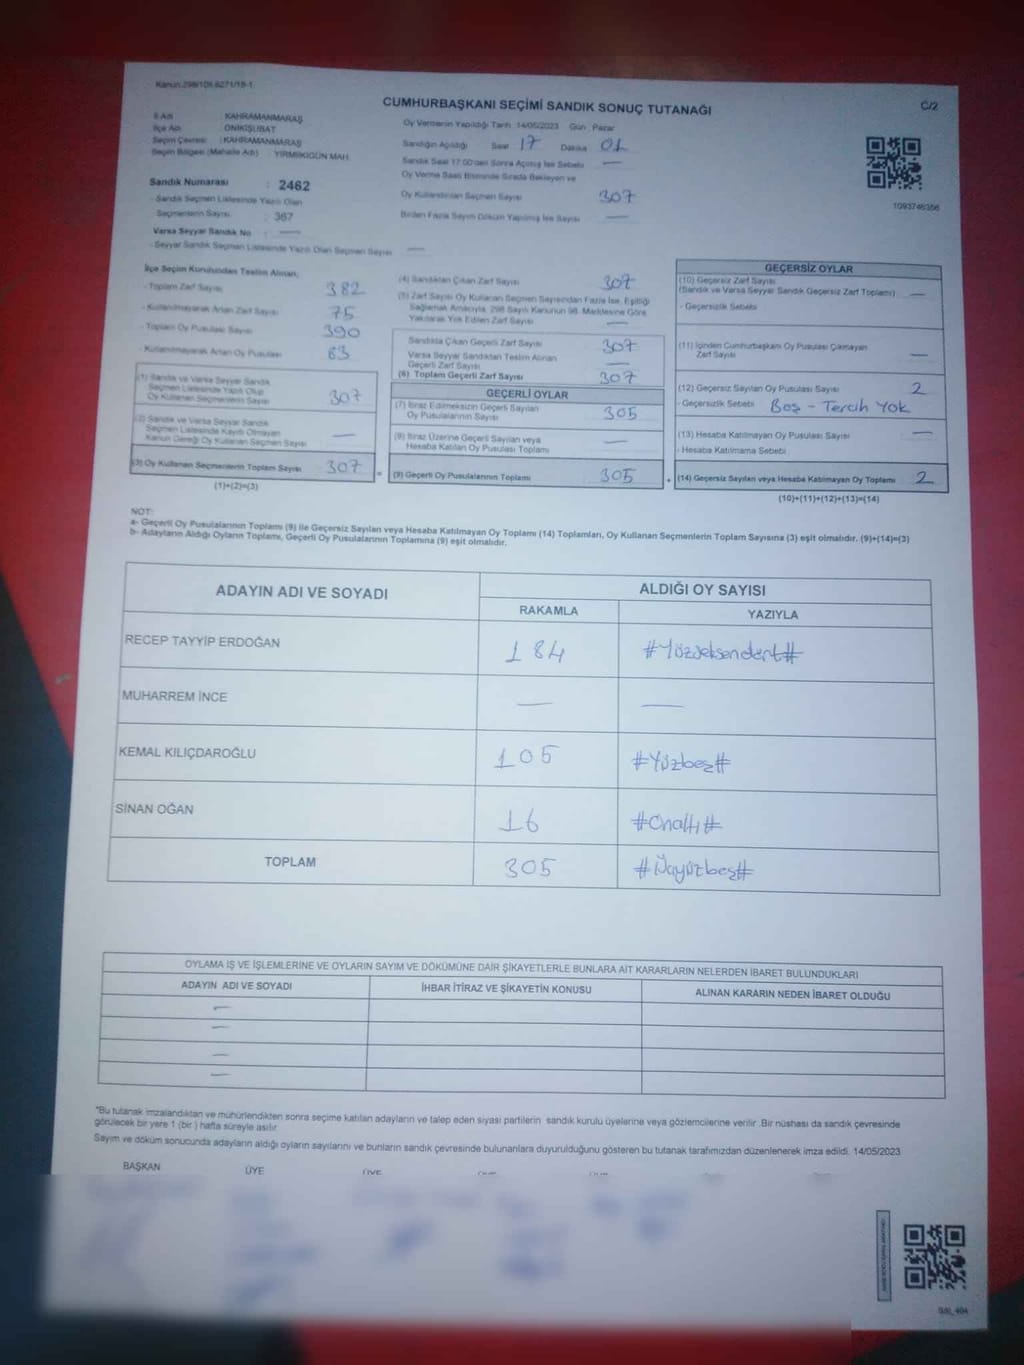 Kanun:298/101.6271/18-1
CUMHURBAŞKANI SEÇİMİ SANDIK SONUÇ TUTANAĞI
C/2
İl Adı KAHRAMANMARAŞ
İlçe Adı ONİKİŞUBAT
Seçim Çevresi : KAHRAMANMARAŞ
Seçim Bölgesi (Mahalle Adı) : YİRMİİKİGÜN MAH.
Sandık Numarası : 2462
- Sandık Seçmen Listesinde Yazılı Olan
Seçmenlerin Sayısı : 367
Varsa Seyyar Sandık No : —
- Seyyar Sandık Seçmen Listesinde Yazılı Olan Seçmen Sayısı —
Oy Vermenin Yapıldığı Tarih :14/05/2023 Gün : Pazar
Sandığın Açıldığı Saat 17 Dakika 01
Sandık Saat 17:00'den Sonra Açılmış İse Sebebi —
Oy Verme Saati Bitiminde Sırada Bekleyen ve
Oy Kullandırılan Seçmen Sayısı 307
Birden Fazla Sayım Döküm Yapılmış İse Sayısı —
1093746356
İlçe Seçim Kurulundan Teslim Alınan;
- Toplam Zarf Sayısı 382
- Kullanılmayarak Artan Zarf Sayısı 75
- Toplam Oy Pusulası Sayısı 390
- Kullanılmayarak Artan Oy Pusulası 83
(1) Sandık ve Varsa Seyyar Sandık
Seçmen Listesinde Yazılı Olup
Oy Kullanan Seçmenlerin Sayısı 307
(2) Sandık ve Varsa Seyyar Sandık
Seçmen Listesinde Kayıtlı Olmayan
Kanun Gereği Oy Kullanan Seçmen Sayısı —
(3) Oy Kullanan Seçmenlerin Toplam Sayısı 307
(1)+(2)=(3)
=
(4) Sandıktan Çıkan Zarf Sayısı 307
(5) Zarf Sayısı Oy Kullanan Seçmen Sayısından Fazla İse, Eşitliği
Sağlamak Amacıyla, 298 Sayılı Kanunun 98. Maddesine Göre
Yakılarak Yok Edilen Zarf Sayısı —
Sandıkta Çıkan Geçerli Zarf Sayısı 307
Varsa Seyyar Sandıktan Teslim Alınan
Geçerli Zarf Sayısı —
(6) Toplam Geçerli Zarf Sayısı 307
GEÇERLİ OYLAR
(7) İtiraz Edilmeksizin Geçerli Sayılan
Oy Pusulalarının Sayısı 305
(8) İtiraz Üzerine Geçerli Sayılan veya
Hesaba Katılan Oy Pusulası Toplamı —
(9) Geçerli Oy Pusulalarının Toplamı 305
+
GEÇERSİZ OYLAR
(10) Geçersiz Zarf Sayısı
(Sandık ve Varsa Seyyar Sandık Geçersiz Zarf Toplamı) —
- Geçersizlik Sebebi
(11) İçinden Cumhurbaşkanı Oy Pusulası Çıkmayan
Zarf Sayısı —
(12) Geçersiz Sayılan Oy Pusulası Sayısı 2
- Geçersizlik Sebebi Boş - Tercih Yok
(13) Hesaba Katılmayan Oy Pusulası Sayısı —
- Hesaba Katılmama Sebebi
(14) Geçersiz Sayılan veya Hesaba Katılmayan Oy Toplamı 2
(10)+(11)+(12)+(13)=(14)
NOT:
a- Geçerli Oy Pusulalarının Toplamı (9) ile Geçersiz Sayılan veya Hesaba Katılmayan Oy Toplamı (14) Toplamları, Oy Kullanan Seçmenlerin Toplam Sayısına (3) eşit olmalıdır. (9)+(14)=(3)
b- Adayların Aldığı Oyların Toplamı, Geçerli Oy Pusulalarının Toplamına (9) eşit olmalıdır.
ADAYIN ADI VE SOYADI ALDIĞI OY SAYISI
RAKAMLA YAZIYLA
RECEP TAYYİP ERDOĞAN 184 #Yüzseksendört#
MUHARREM İNCE — —
KEMAL KILIÇDAROĞLU 105 #Yüzbeş#
SİNAN OĞAN 16 #Onaltı#
TOPLAM 305 #Üçyüzbeş#
OYLAMA İŞ VE İŞLEMLERİNE VE OYLARIN SAYIM VE DÖKÜMÜNE DAİR ŞİKAYETLERLE BUNLARA AİT KARARLARIN NELERDEN İBARET BULUNDUKLARI
ADAYIN ADI VE SOYADI İHBAR İTİRAZ VE ŞİKAYETİN KONUSU ALINAN KARARIN NEDEN İBARET OLDUĞU
—
—
—
—
*Bu tutanak imzalandıktan ve mühürlendikten sonra seçime katılan adayların ve talep eden siyasi partilerin sandık kurulu üyelerine veya gözlemcilerine verilir .Bir nüshası da sandık çevresinde
görülecek bir yere 1 (bir ) hafta süreyle asılır
Sayım ve döküm sonucunda adayların aldığı oyların sayılarını ve bunların sandık çevresinde bulunanlara duyurulduğunu gösteren bu tutanak tarafımızdan düzenlenerek imza edildi. 14/05/2023
BAŞKAN ÜYE ÜYE